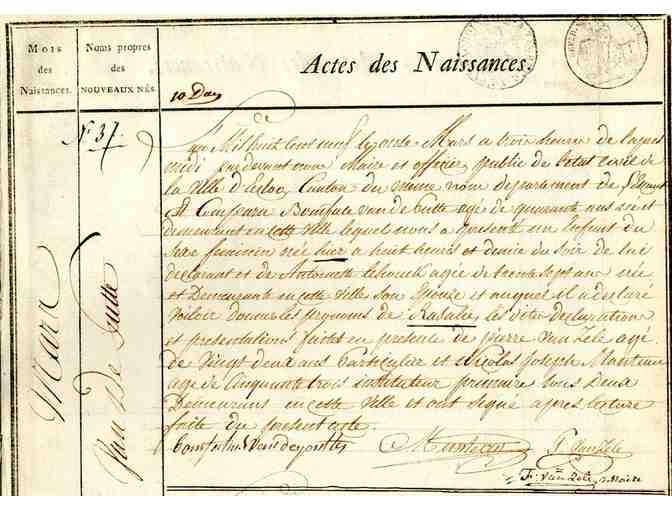 Mois
des
Naissances.
Noms propres
des
NOUVEAUX NÉS.
Actes des Naissances.
10 Day
N° 37.
Mars
Van De Putte
L'an Mil huit cent neuf le onze Mars a trois heures de l'apres
midi pardevant nous Maire et officier public de l'etat civil de
la Ville d'Ecloo Canton du meme nom departement de l'Escaut
Est Comparu Boniface van de Putte agé de quarante nus ans et
demeurant en cette Ville lequel nous a presenté un Enfant du
sexe feminin née hier a huit heures et demie du soir de lui
declarant et de Antoinette agée de trente sept ans née
et Demeurante en cette Ville son Epouse et auquel il a declaré
vouloir donner les prenoms de Rosalie, les dites declaration
et presentations faites en presence de pierre Van Zele agé
de Vingt deux ans particulier et Nicolas Joseph
age de Cinquante trois instituteur primaire tous Deux
Demeurans en cette Ville et ont signé apres lecture
faite du present acte.
P. Van Zele
F: Van Zele, Maire